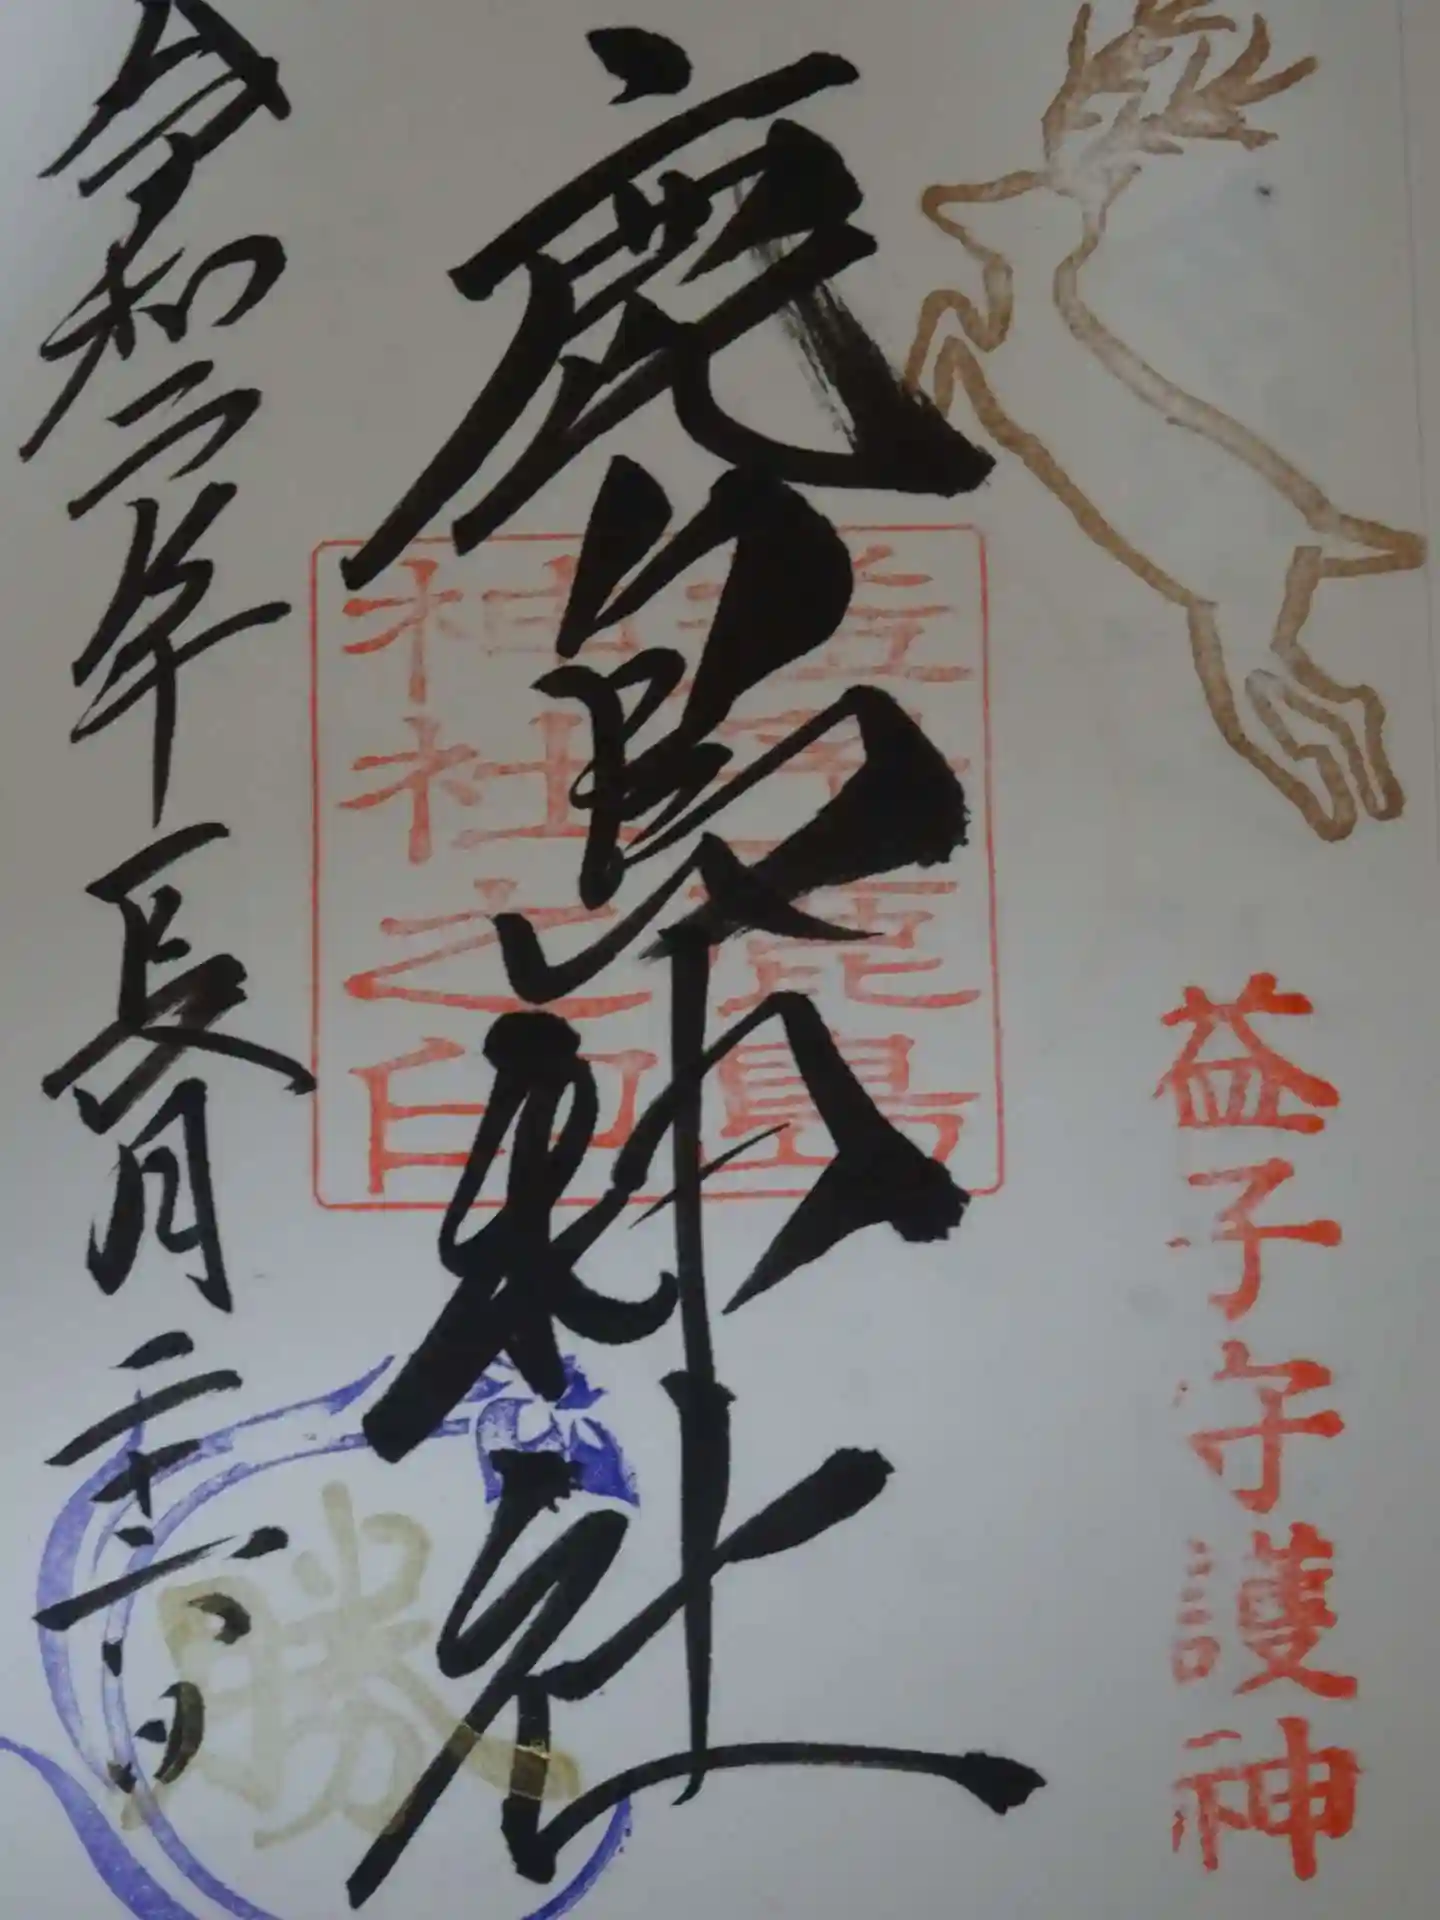 益子守護神
鹿島神社
益子鹿島
神社之印
令和二年長月二十二日
勝